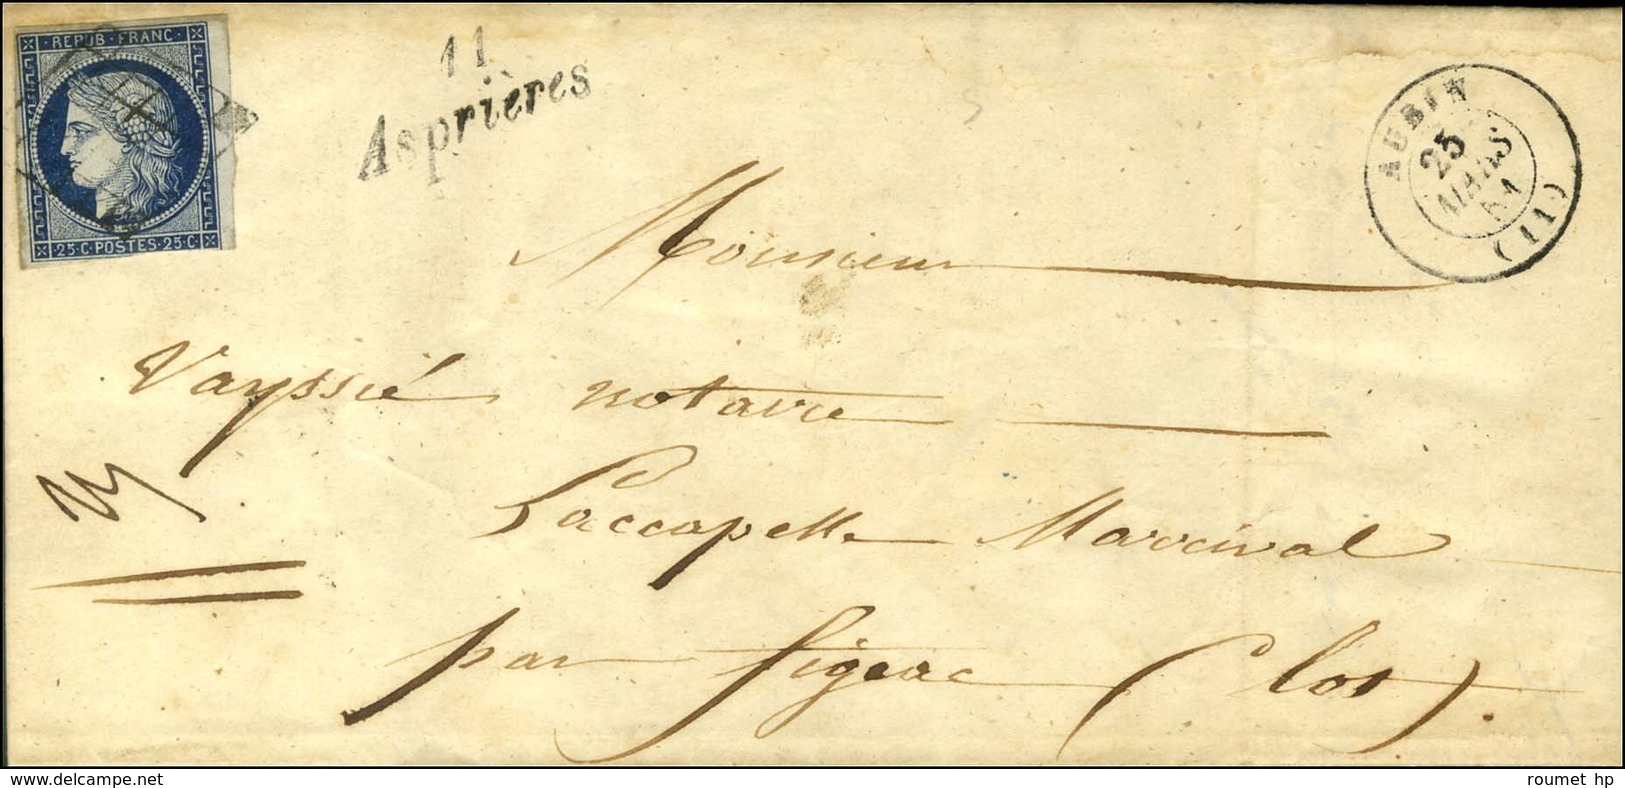 REPUB · FRANC ·
25 · C · POSTES · 25 · C ·
11
Asprières
AUBIN
25
MARS
51
(11)
Monsieur
Vayssié notaire
Laccapelle Marcival
par figeac (lot).
www.delcampe.net
roumet hp